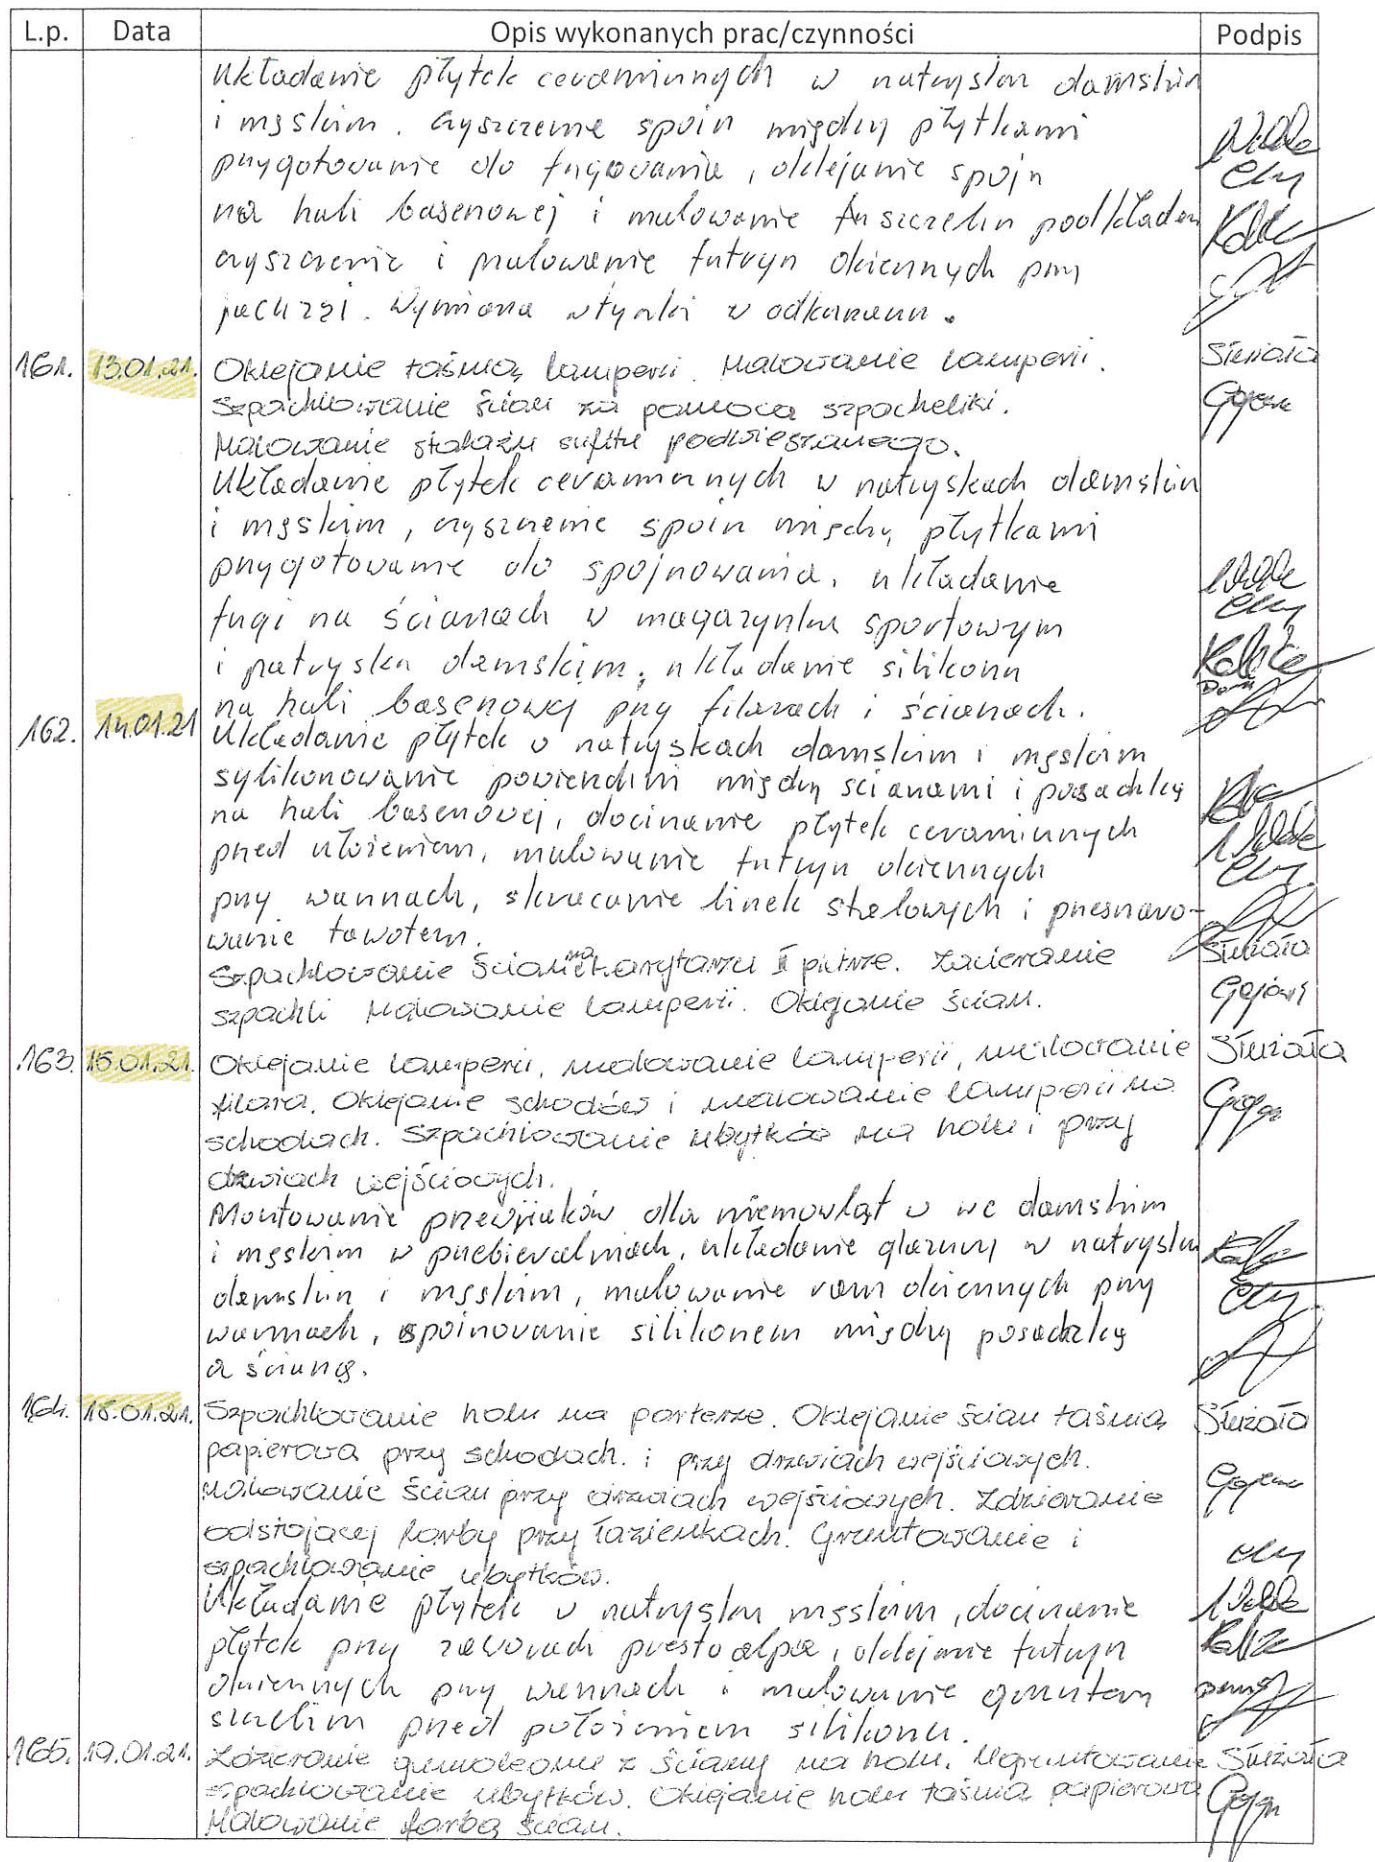 L.p. Data Opis wykonanych prac/czynności Podpis
Układanie płytek ceramicznych w natrysku damskim
i męskim. czyszczenie spoin między płytkami
przygotowanie do fugowania, oklejanie spoin
na hali basenowej i malowanie szczelin podkładem
czyszczenie i malowanie futryn okiennych przy
jacuzzi. Wymiana wtyczki w odkurzaczu.
161. 13.01.21. Oklejanie taśmą lamperii. Malowanie lamperii. Słuzała
Szpachlowanie ścian za pomocą szpachelki.
Malowanie stelażu sufitu podwieszanego.
Układanie płytek ceramicznych w natryskach damskim
i męskim, czyszczenie spoin między płytkami
przygotowanie do spojnowania, układanie
fugi na ścianach w magazynku sportowym
i natrysku damskim, układanie silikonu
na hali basenowej przy filarach i ścianach.
162. 14.01.21 Układanie płytek w natryskach damskim i męskim
sylikonowanie powierzchni między ścianami i posadzką
na hali basenowej, docinanie płytek ceramicznych
przed ułożeniem, malowanie futryn okiennych
przy wannach, skracanie linek stalowych i przesmaro-
wanie tawotem.
Szpachlowanie ścian na korytarzu I piętrze. Zacieranie Słuzała
szpachli Malowanie lamperii. Oklejanie ścian.
163. 15.01.21. Oklejanie lamperii, malowanie lamperii, malowanie Słuzała
filara. Oklejanie schodów i malowanie lamperii na
schodach. Szpachlowanie ubytków na holu i przy
drzwiach wejściowych.
Montowanie przewijaków dla niemowląt w wc damskim
i męskim w przebieralniach, układanie glazury w natrysku
damskim i męskim, malowanie ram okiennych przy
wannach, spoinowanie silikonem między posadzką
a ścianą.
164. 18.01.21. Szpachlowanie holu na parterze. Oklejanie ścian taśmą Słuzała
papierową przy schodach. i przy drzwiach wejściowych.
Malowanie ścian przy drzwiach wejściowych. Zdzieranie
odstającej farby przy łazienkach. Gruntowanie i
szpachlowanie ubytków.
Układanie płytek w natrysku męskim, docinanie
płytek przy zaworach presto alpa, oklejanie futryn
okiennych przy wannach i malowanie gruntem
szczelin przed położeniem silikonu.
165. 19.01.21. Zdzieranie gumoleonu z ściany na holu. Ugruntowanie Słuzała
szpachlowanie ubytków. Oklejanie holu taśmą papierową
Malowanie farbą ścian.